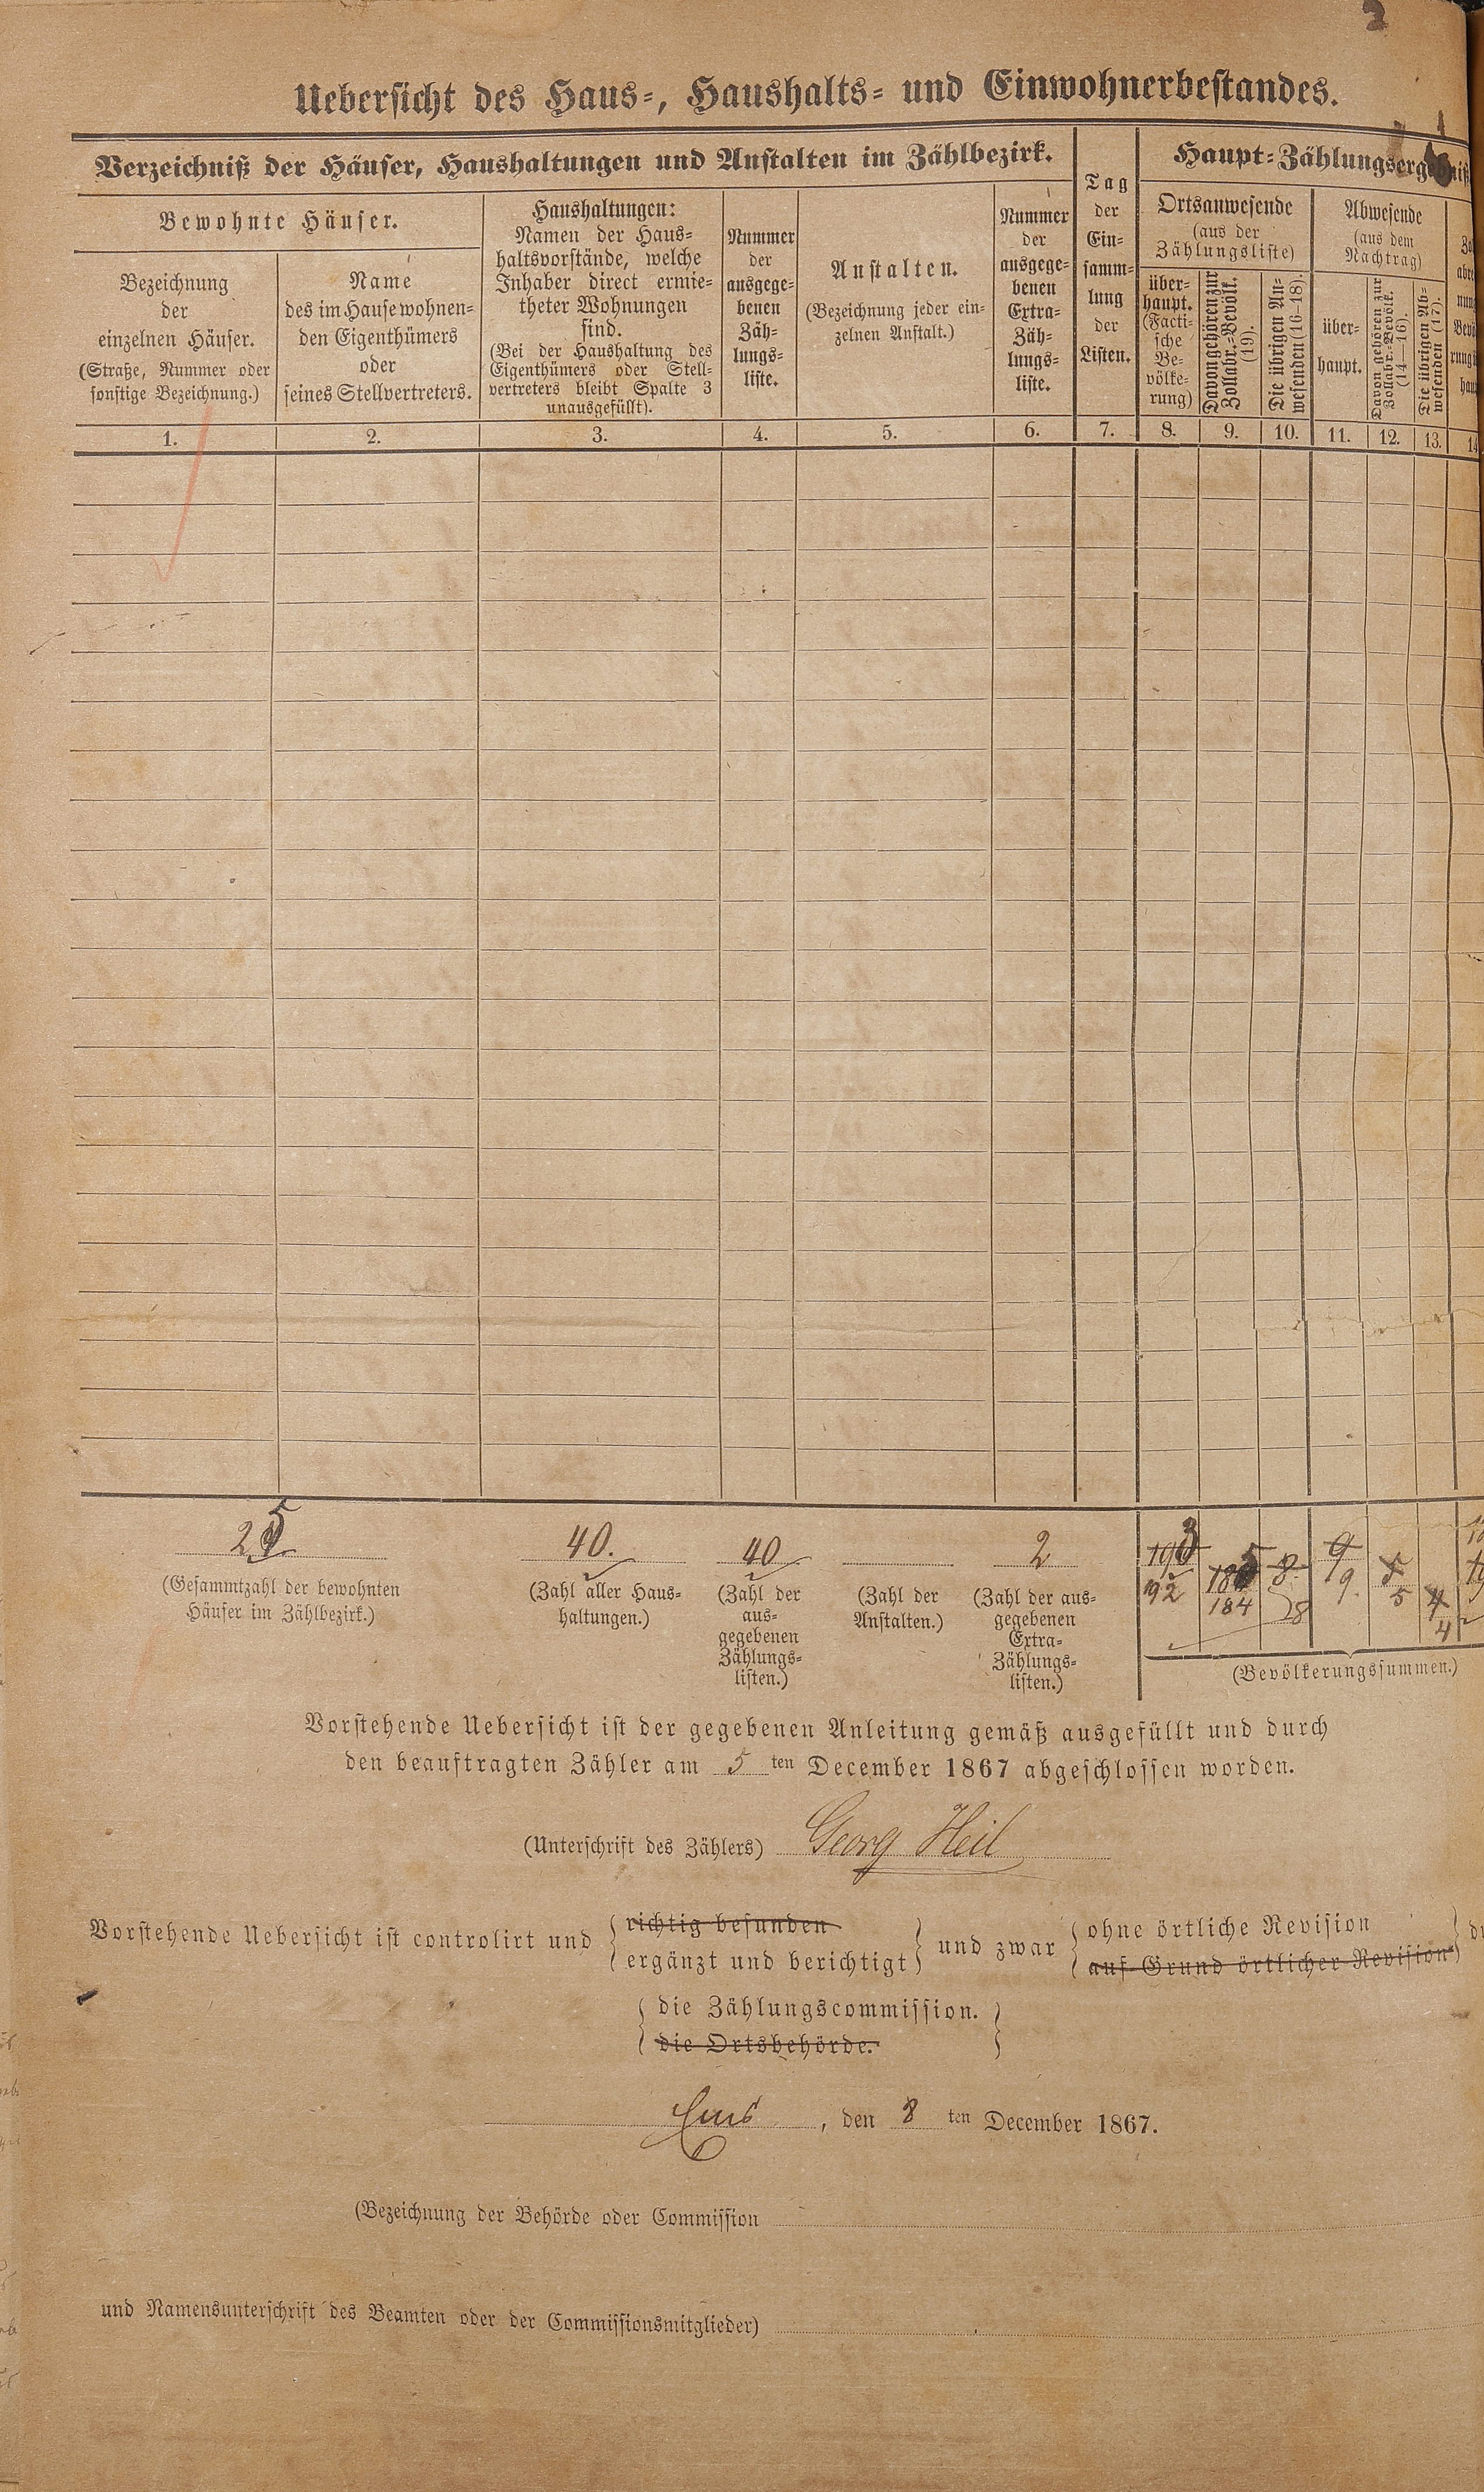 2
Uebersicht des Haus-, Haushalts- und Einwohnerbestandes.
Verzeichniß der Häuser, Haushaltungen und Anstalten im Zählbezirk.
Bewohnte Häuser.
Bezeichnung
der
einzelnen Häuser.
(Straße, Nummer oder
sonstige Bezeichnung.)
Name
des im Hause wohnen-
den Eigenthümers
oder
seines Stellvertreters.
Haushaltungen:
Namen der Haus-
haltsvorstände, welche
Inhaber direct ermie-
theter Wohnungen
sind.
(Bei der Haushaltung des
Eigenthümers oder Stell-
vertreters bleibt Spalte 3
unausgefüllt).
Nummer
der
ausgege-
benen
Zäh-
lungs-
liste.
Anstalten.
(Bezeichnung jeder ein-
zelnen Anstalt.)
Nummer
der
ausgege-
benen
Extra-
Zäh-
lungs-
liste.
Tag
der
Ein-
samm-
lung
der
Listen.
Haupt-Zählungserg
Ortsanwesende
(aus der
Zählungsliste)
über-
haupt.
(Facti-
sche
Be-
völke-
rung)
Davon gehören zur
Zollabr.-Bevölk.
(19).
Die übrigen An-
wesenden (16-18).
Abwesende
(aus dem
Nachtrag)
über-
haupt.
Davon gehören zur
Zollabr.-Bevölk.
(14-16).
Die übrigen Ab-
wesenden (17).
1. 2. 3. 4. 5. 6. 7. 8. 9. 10. 11. 12. 13. 14
25 40. 40 2 193 185 8 9 5 4
192 184 28 9. 5 4
(Gesammtzahl der bewohnten
Häuser im Zählbezirk.)
(Zahl aller Haus-
haltungen.)
(Zahl der
aus-
gegebenen
Zählungs-
listen.)
(Zahl der
Anstalten.)
(Zahl der aus-
gegebenen
Extra-
Zählungs-
listen.)
(Bevölkerungssummen.)
Vorstehende Uebersicht ist der gegebenen Anleitung gemäß ausgefüllt und durch
den beauftragten Zähler am 5 ten December 1867 abgeschlossen worden.
(Unterschrift des Zählers) Georg Heil
Vorstehende Uebersicht ist controlirt und { richtig befunden
ergänzt und berichtigt } und zwar { ohne örtliche Revision
auf Grund örtlicher Revision }
{ die Zählungscommission.
die Ortsbehörde. }
Ems, den 8 ten December 1867.
(Bezeichnung der Behörde oder Commission
und Namensunterschrift des Beamten oder der Commissionsmitglieder)